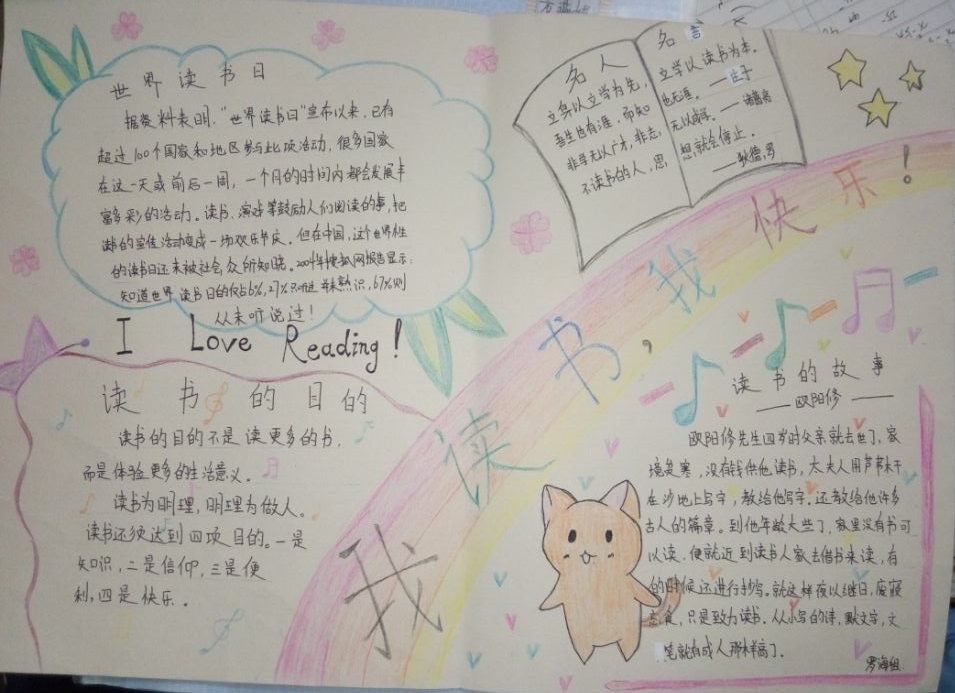 世界读书日
据资料表明，"世界读书日"宣布以来，已有
超过100个国家和地区参与此项活动，很多国家
在这一天或前后一周，一个月的时间内都会发展丰
富多彩的活动。读书、演戏等鼓励人们阅读的事，把
读书的宣传活动变成一场欢乐节庆。但在中国，这个世界性
的读书日还未被社会众所知晓。2004年搜狐网报告显示：
知道世界读书日的仅占6%，27%只听过并未熟识，67%则
从未听说过！
I Love Reading!
读书的目的
读书的目的不是读更多的书，
而是体验更多的生活意义。
读书为明理，明理为做人。
读书还须达到四项目的。一是
知识，二是信仰，三是便
利，四是快乐。
名人
立身以立学为先，
吾生也有涯，而知
非学无以广才，非志
不读书的人，思
名言
立学以读书为本。
也无涯。——庄子
无以成学。——诸葛亮
想就会停止。
——狄德罗
我读书，我快乐！
读书的故事
——欧阳修——
欧阳修先生四岁时父亲就去世了，家
境贫寒，没有钱供他读书，太夫人用芦苇杆
在沙地上写字，教给他写字。还教给他许多
古人的篇章。到他年龄大些了，家里没有书可
以读，便就近到读书人家去借书来读，有
的时候还进行抄写。就这样夜以继日，废寝
忘食，只是致力读书。从小写的诗，赋文字，文
笔就有成人那样高了。